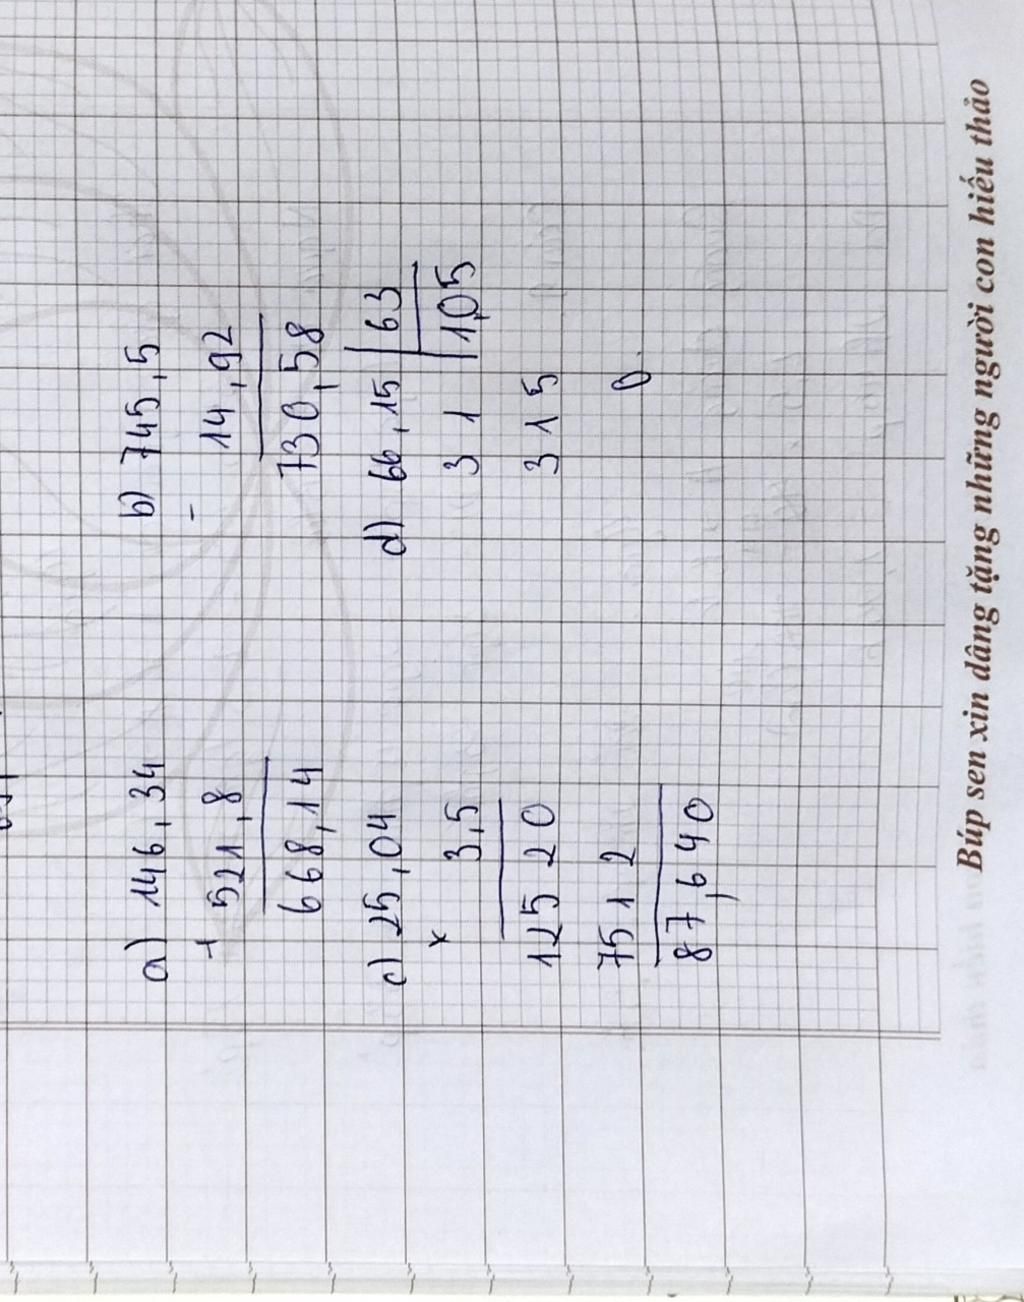 a) 146,34
+ 521,8
668,14
b) 745,5
- 14,92
730,58
c) 25,04
x 3,5
125 20
751 2
87,640
d) 66,15 | 63
3 1 | 1,05
3 15
0
Búp sen xin dâng tặng những người con hiếu thảo